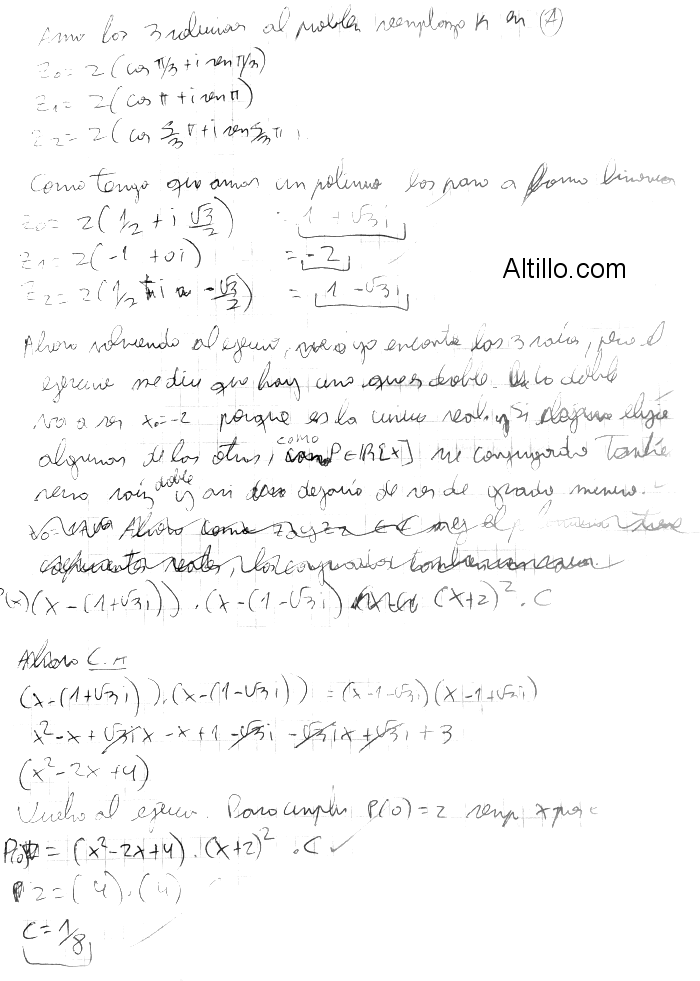 Armo las 3 soluciones al problem reemplazo K en (A)
Z₀ = 2 (cos π/3 + i sen π/3)
Z₁ = 2 (cos π + i sen π)
Z₂ = 2 (cos 5/3 π + i sen 5/3 π
Como tengo que armar un polinomio los paso a forma binomica
Z₀ = 2 (1/2 + i √3/2) = 1 + √3 i
Z₁ = 2 (-1 + 0i) = -2
Z₂ = 2 (1/2 + i - √3/2) = 1 - √3 i
Altillo.com
Ahora volviendo al ejercicio, ya encontre las 3 raices, pero el
ejercicio me dice que hay una que es doble. La doble
va a ser x₀ = -2 porque es la unica real. y Si elijo
algunas de las otras, como P ∈ ℝ[x] su conjugado también
seria raiz doble y asi dejaria de ser de grado minimo.
P(x) (x - (1+√3i)) . (x - (1-√3i) (x+2)² . C
Ahora C.A
(x - (1+√3i)) . (x - (1-√3i)) = (x-1-√3i)(x-1+√3i)
x² - x + √3i x - x + 1 - √3i - √3i x + √3i + 3
(x² - 2x + 4)
Vuelvo al ejercicio. Para cumplir P(0) = 2 reemp x por
P(0) = (x² - 2x + 4) . (x+2)² . C ✓
2 = (4) . (4)
C = 1/8